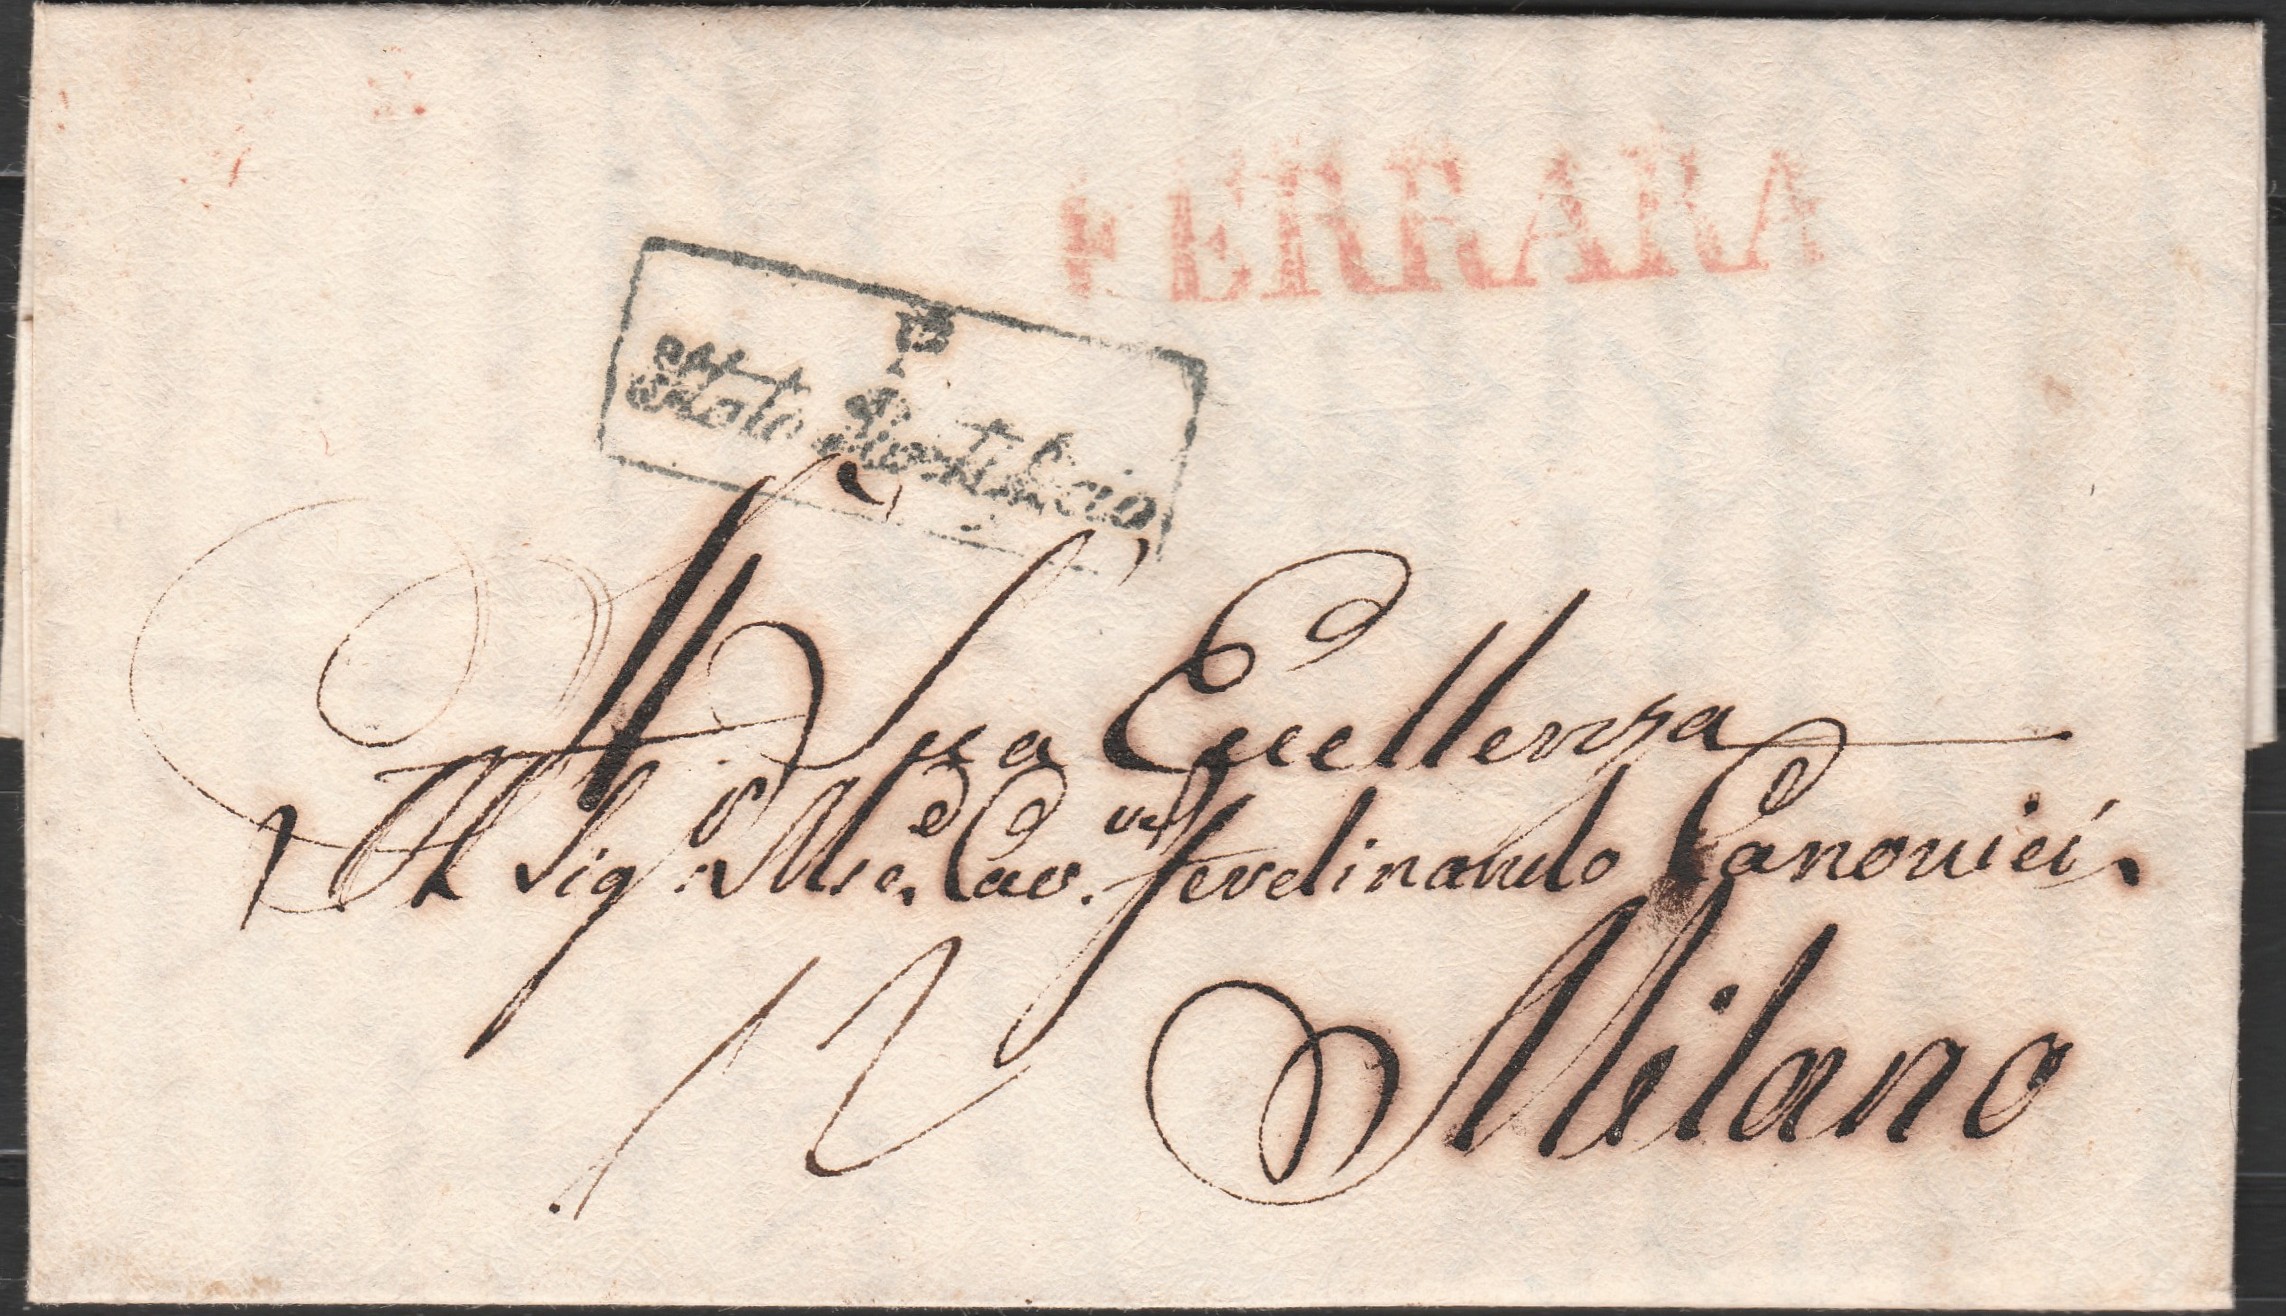 FERRARA
L.T.
Stato Pontificio
A Sua Eccellenza
Il Sig.r M.se Cav.e Ferdinando Canonici.
12
Milano